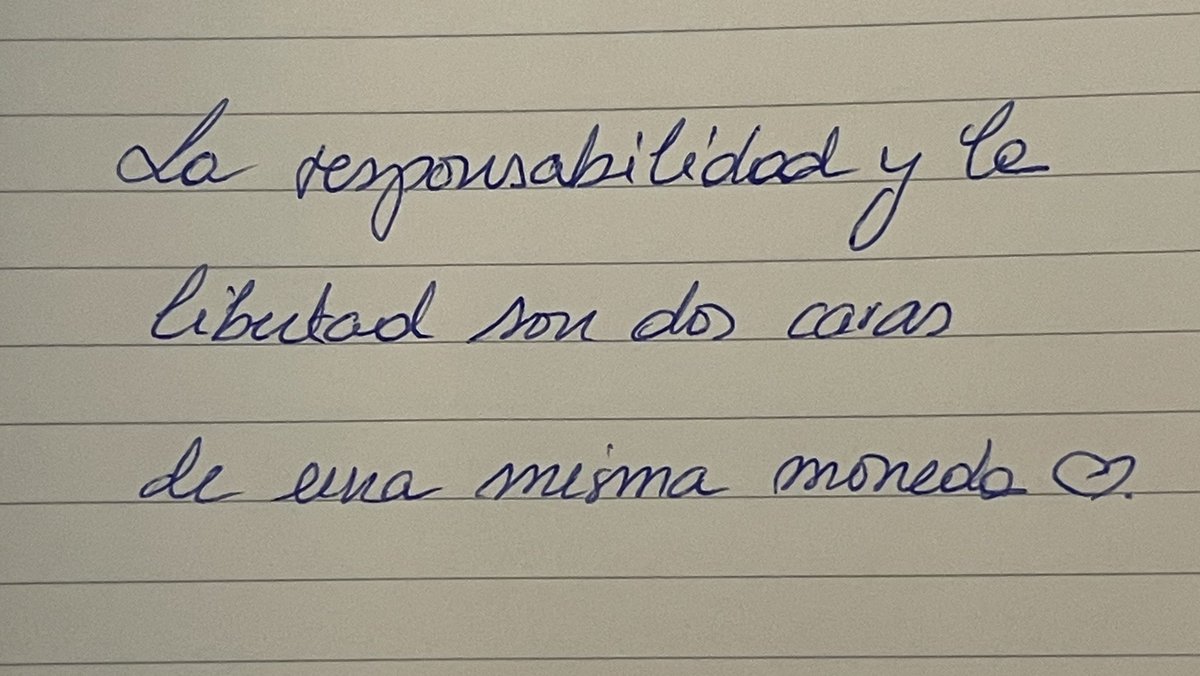 La responsabilidad y la
libertad son dos caras
de una misma moneda ♡.